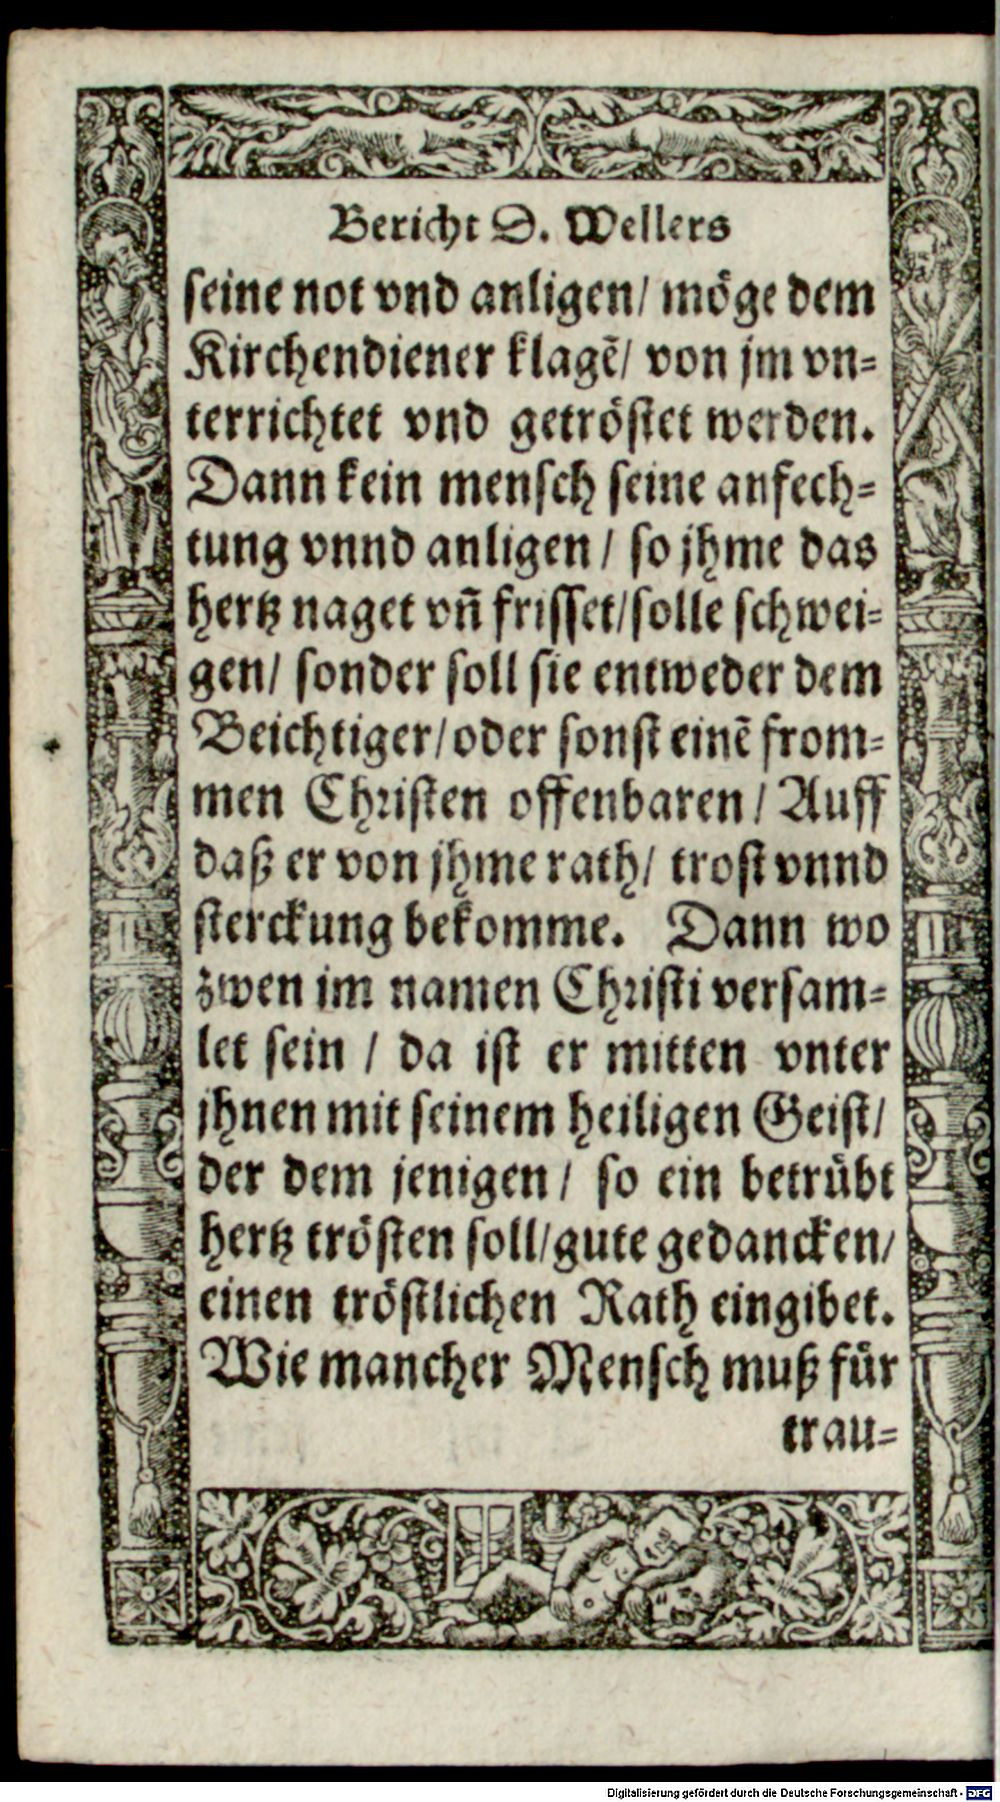 Bericht D. Wellers
seine not vnd anligen/ möge dem
Kirchendiener klagẽ/ von jm vn=
terrichtet vnd getröstet werden.
Dann kein mensch seine anfech=
tung vnnd anligen / so jhme das
hertz naget vñ frisset/solle schwei=
gen/ sonder soll sie entweder dem
Beichtiger/oder sonst einẽ from=
men Christen offenbaren / Auff
daß er von jhme rath/ trost vnnd
sterckung bekomme. Dann wo
zwen im namen Christi versam=
let sein / da ist er mitten vnter
jhnen mit seinem heiligen Geist/
der dem jenigen/ so ein betrübt
hertz trösten soll/gute gedancken/
einen tröstlichen Rath eingibet.
Wie mancher Mensch muß für
trau=
Digitalisierung gefördert durch die Deutsche Forschungsgemeinschaft - DFG